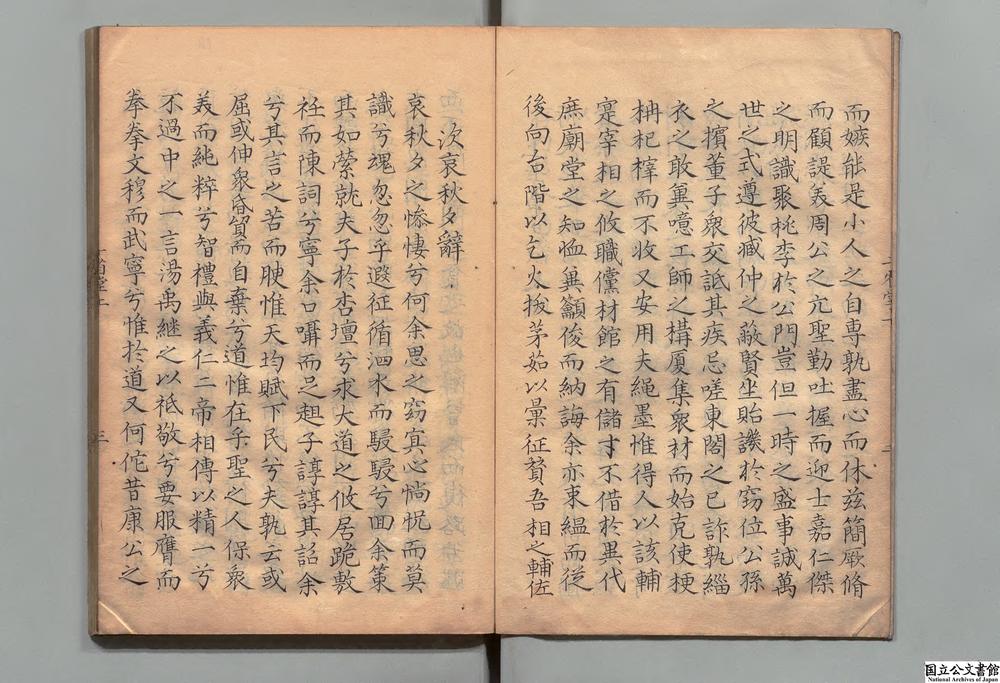 而嫉能是小人之自專孰盡心而休玆簡厥脩
而顧諟羙周公之亢聖勤吐握而迎士嘉仁傑
之明識聚桃李於公門豈但一時之盛事誠萬
世之式遵彼臧仲之蔽賢坐貽譏於竊位公孫
之擯董子衆交詆其疾忌嗟東閤之已詐孰緇
衣之敢冀噫工師之構厦集衆材而始克使梗
柟杞梓而不收又安用夫繩墨惟得人以該輔
寔宰相之攸職儻材館之有儲寸不借於異代
庶廟堂之知恤兾籲俊而納誨余亦束緼而從
後向台階以乞火拔茅茹以彙征贊吾相之輔佐
次哀秋夕辭
哀秋夕之慘悽兮何余思之窈宜心惝怳而莫
識兮魂忽忽乎遐征循泗水而駸駸兮回余策
其如縈就夫子於杏壇兮求大道之攸居跪敷
衽而陳詞兮寧余口囁而足趄子諄諄其詔余
兮其言之苦而腴惟天均賦下民兮夫孰云或
屈或伸衆昏貿而自棄兮道惟在乎聖之人保衆
羙而純粹兮智禮與義仁二帝相傳以精一兮
不過中之一言湯禹継之以祗敬兮要服膺而
拳拳文穆而武寧兮惟扵道又何佗昔康公之
三
国立公文書館
National Archives of Japan